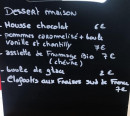 Dessert maison
- Mousse chocolat 6€
- pommes caramelisé + boule
vanille et chantilly 7€
- assiette de fromage Bio 7€
(chèvre)
- boule de glace 2€
- Clafoutis aux Fraises Sud de France
7€